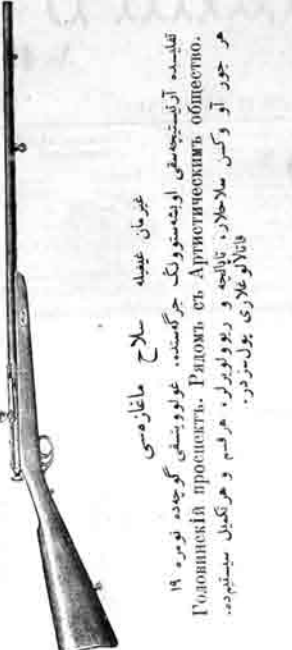 غیرمان غیبله سلاح ماغازەسی
تفلیسده آرتیستیچهسقی اوبشهستوولگ جرگهسنده، غولووینسقی گوچهده نومره ۱۹
Головинскій проспектъ. Рядомъ съ Артистическимъ общество.
هر جور آو وکسن سلاحلار، تاپالچه و ریوولویرلر، هر قسم و هر تکمیل سیستیمده.
قاتالوغلاری پول سزدر.